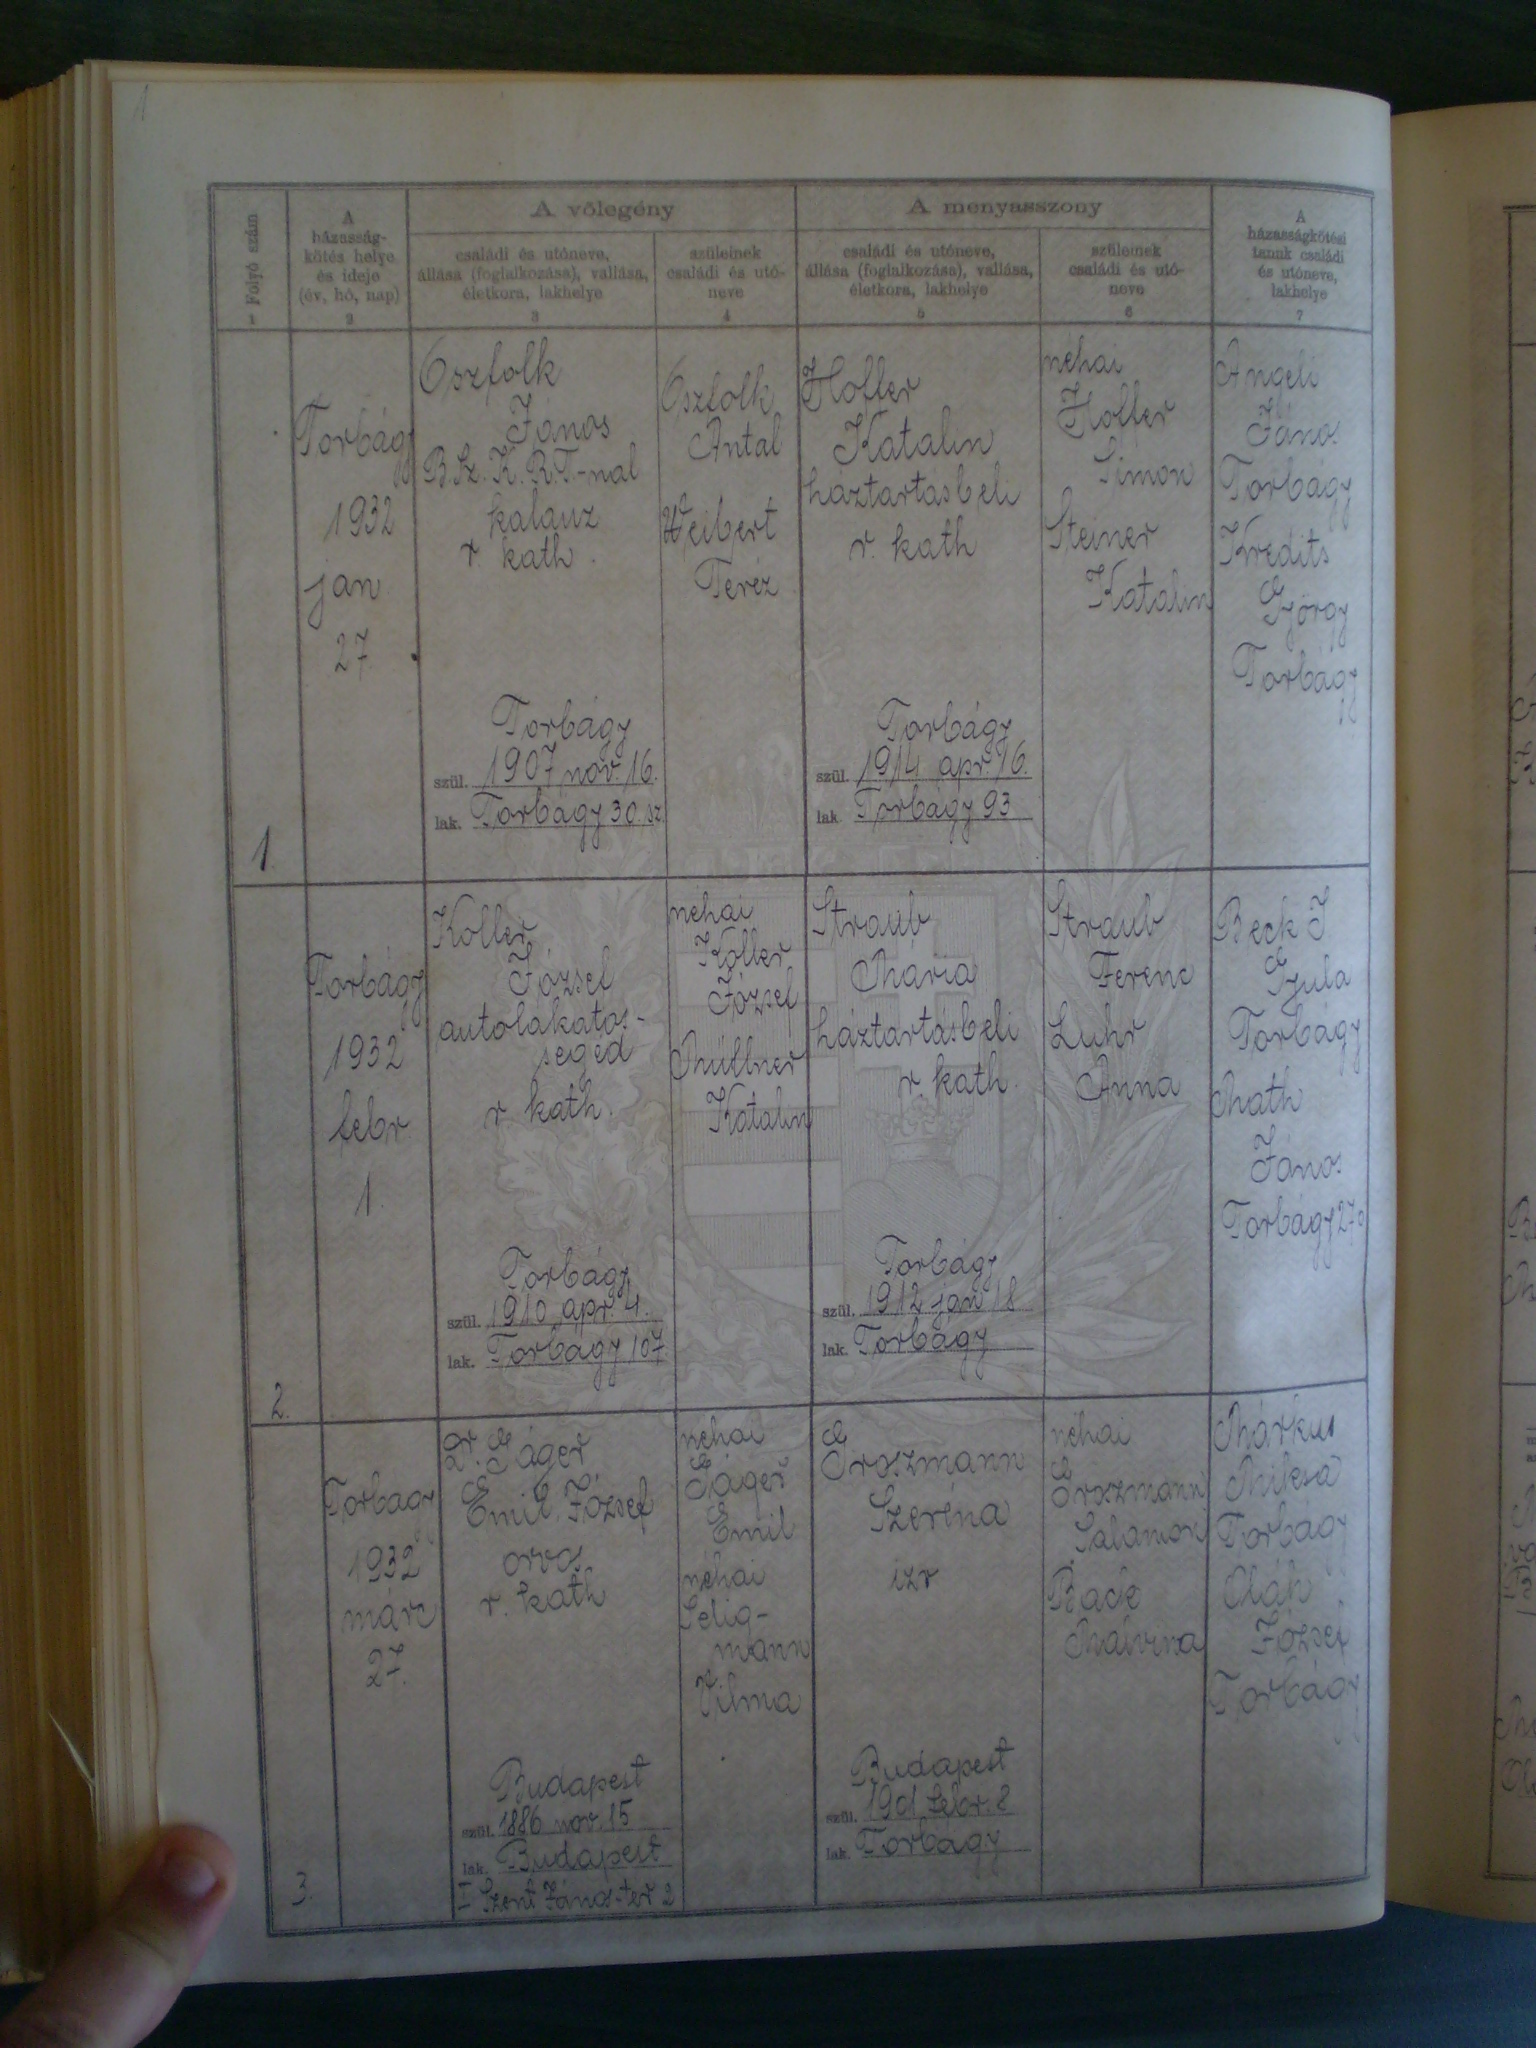 1
Folyó szám
1
A
házasság-
kötés helye
és ideje
(év, hó, nap)
2
A vőlegény
családi és utóneve,
állása (foglalkozása), vallása,
életkora, lakhelye
3
szüleinek
családi és utó-
neve
4
A menyasszony
családi és utóneve,
állása (foglalkozása), vallása,
életkora, lakhelye
5
szüleinek
családi és utó-
neve
6
A
házasságkötési
tanuk családi
és utóneve,
lakhelye
7
1.
Torbágy
1932
jan
27
Oszfolk
János
B.Sz.K.R.T.-nal
kalauz
r. kath.
Torbágy
szül. 1907 nov. 16.
lak. Torbágy 30. sz.
Oszfolk
Antal
Weibert
Teréz
Hoffer
Katalin
háztartásbeli
r. kath
Torbágy
szül. 1914 apr. 16.
lak. Torbágy 93
néhai
Hoffer
Simon
Steiner
Katalin
Angeli
János
Torbágy
Kredits
György
Torbágy
2.
Torbágy
1932
febr
1.
Koller
József
autolakatos-
segéd
r kath.
Torbágy
szül. 1910 apr. 4.
lak. Torbágy 107
néhai
Koller
József
Müllner
Katalin
Straub
Mária
háztartásbeli
r. kath.
Torbágy
szül. 1912 jan 18
lak. Torbágy
Straub
Ferenc
Luhr
Anna
Beck J.
Gyula
Torbágy
Math
János
Torbágy 270
3.
Torbagy
1932
márc
27.
Dr. Jáger
Emil József
orvos
r. kath
Budapest
szül. 1886 nov. 15
lak. Budapest
I Szent János-tér 2
néhai
Jáger
Emil
néhai
Selig-
mann
Vilma
Groszmann
Szeréna
izr
Budapest
szül. febr. 8
lak. Torbágy
néhai
Groszmann
Salamon
Back
Malvina
Márkus
Miksa
Torbágy
Oláh
József
Torbágy